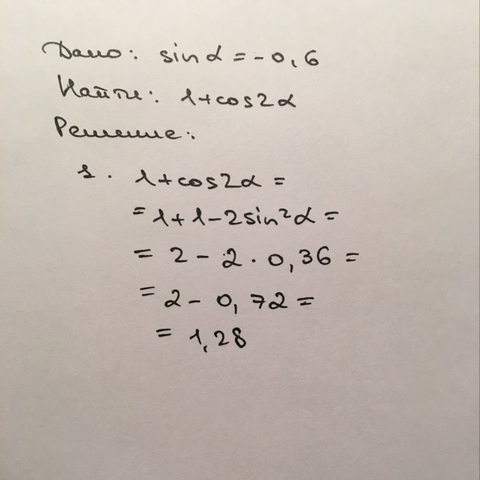 Дано: sinα = -0,6
Найти: 1+cos2α
Решение:
1. 1+cos2α =
= 1+1-2sin²α =
= 2 - 2 · 0,36 =
= 2 - 0,72 =
= 1,28